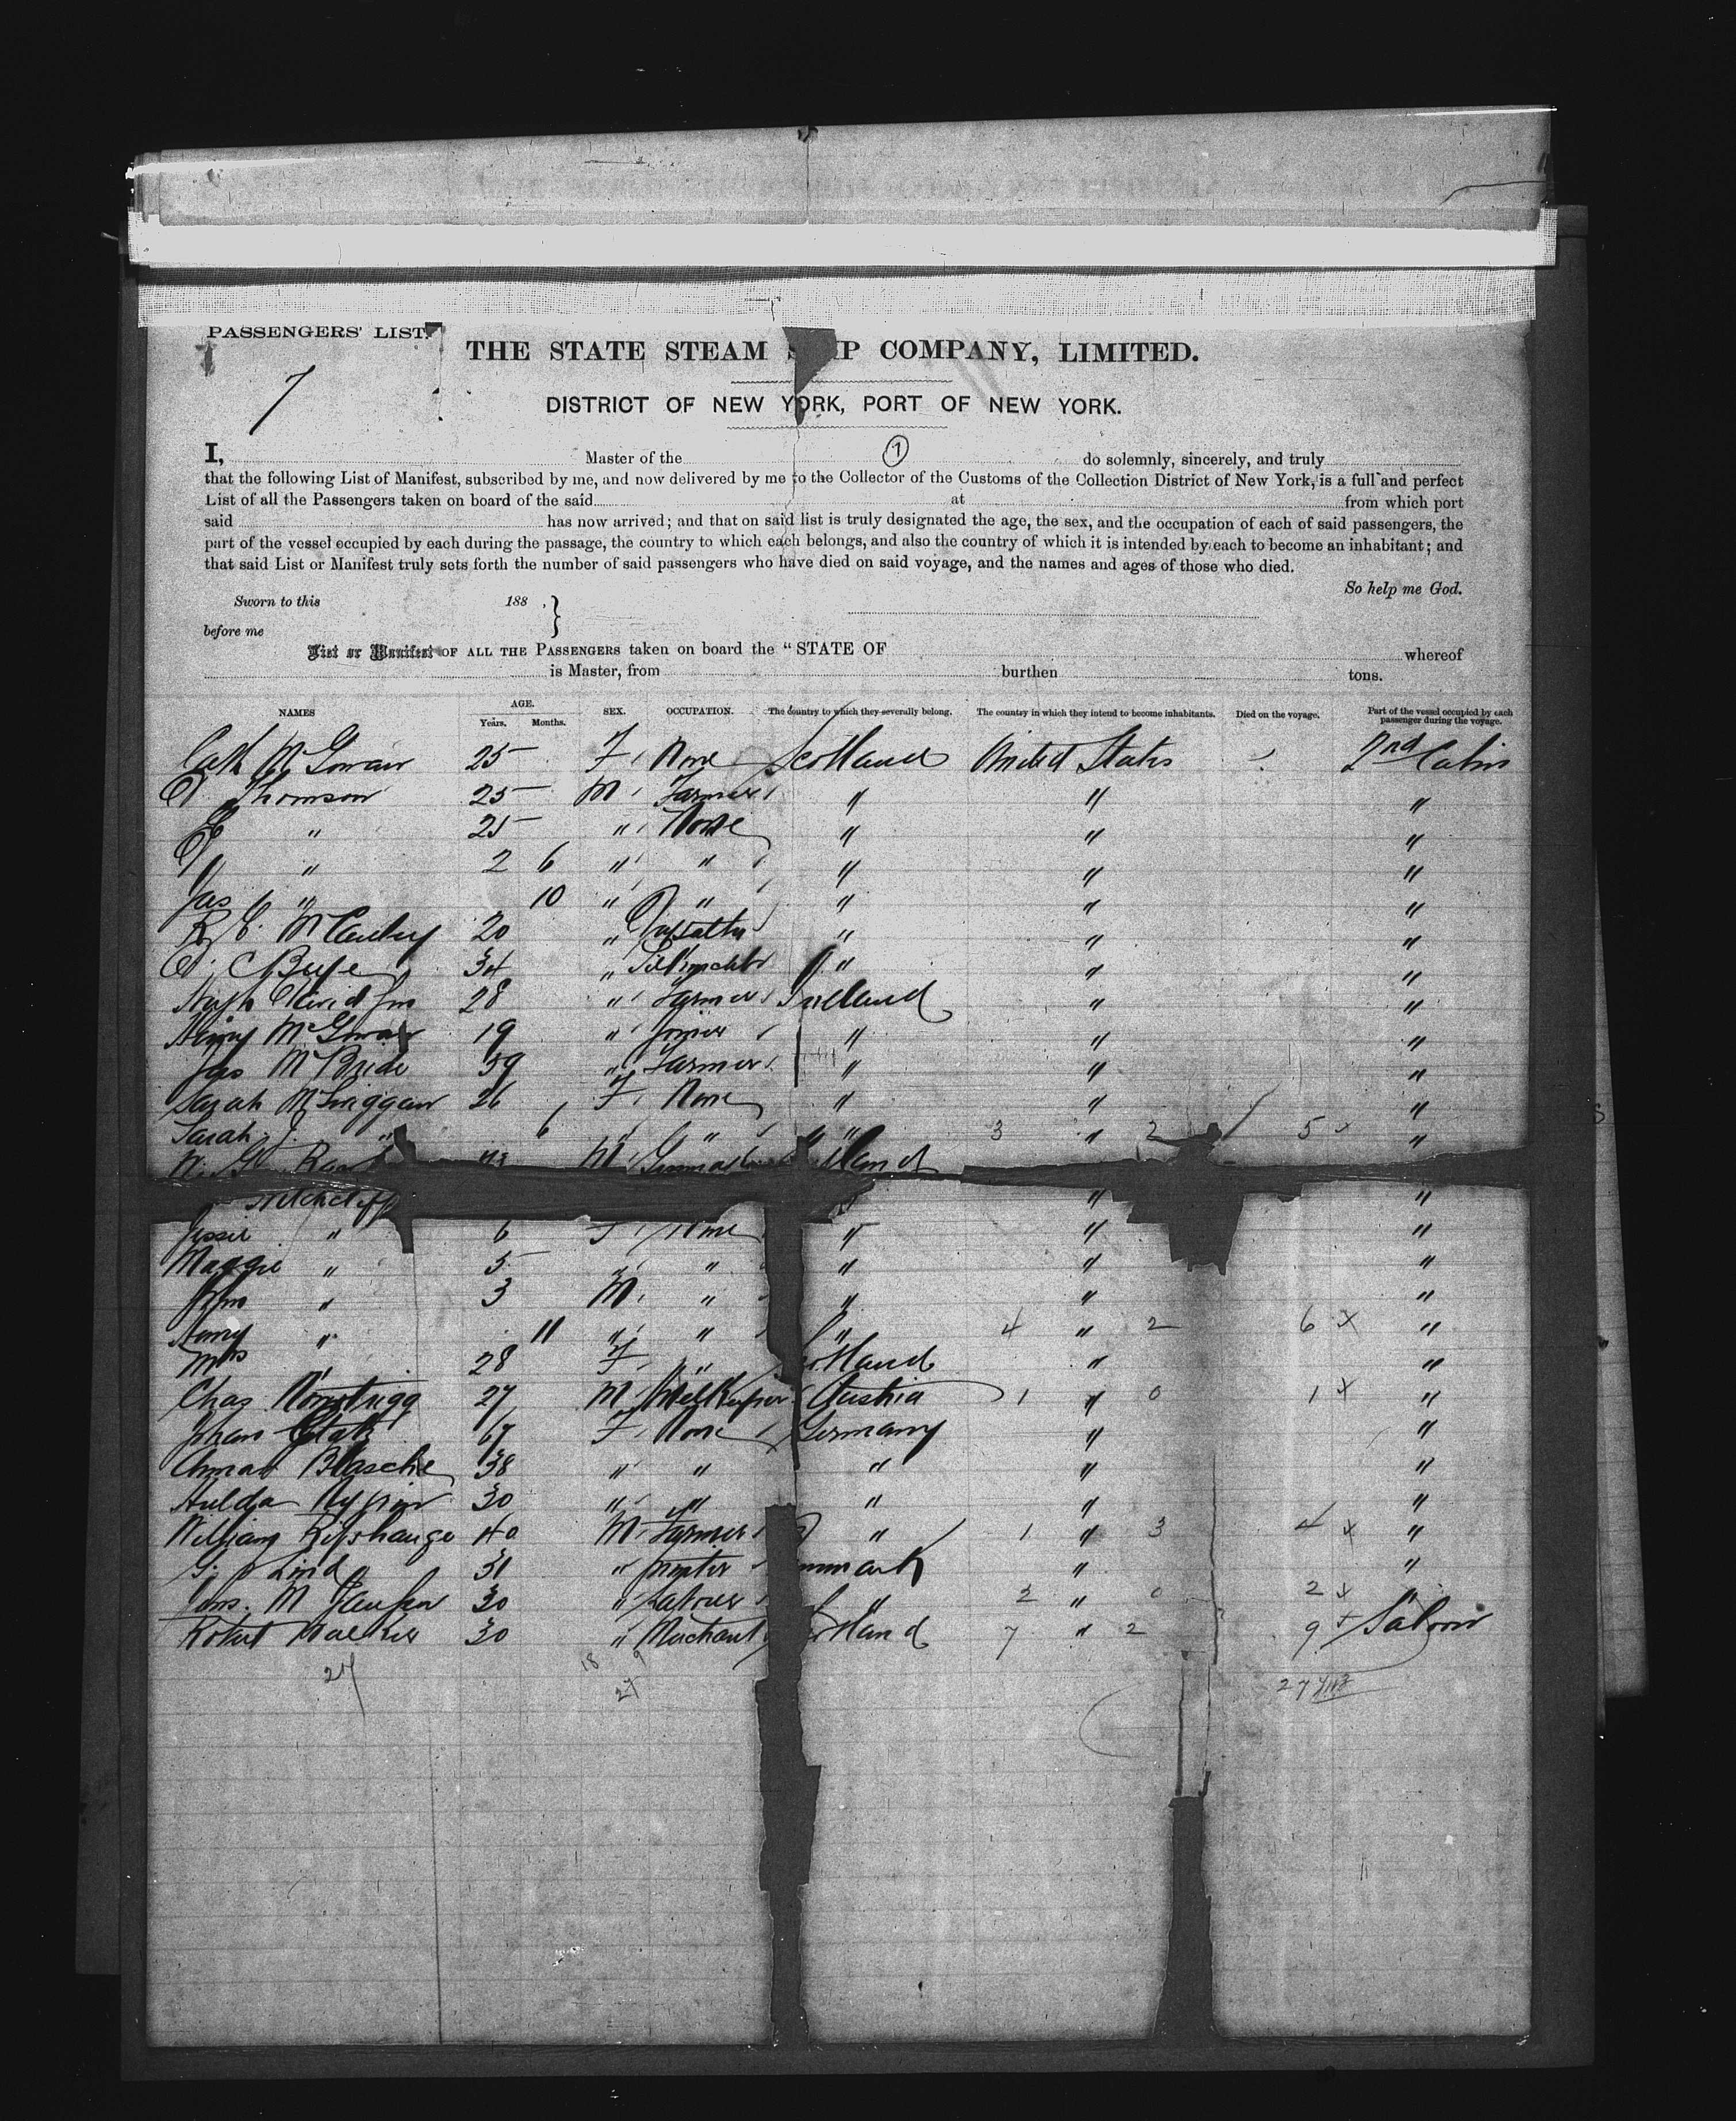 PASSENGERS' LIST.
7
THE STATE STEAM SHIP COMPANY, LIMITED.
DISTRICT OF NEW YORK, PORT OF NEW YORK.
1
I, Master of the do solemnly, sincerely, and truly
that the following List of Manifest, subscribed by me, and now delivered by me to the Collector of the Customs of the Collection District of New York, is a full and perfect
List of all the Passengers taken on board of the said at from which port
said has now arrived; and that on said list is truly designated the age, the sex, and the occupation of each of said passengers, the
part of the vessel occupied by each during the passage, the country to which each belongs, and also the country of which it is intended by each to become an inhabitant; and
that said List or Manifest truly sets forth the number of said passengers who have died on said voyage, and the names and ages of those who died.
So help me God.
Sworn to this 188 , }
before me
List or Manifest OF ALL THE PASSENGERS taken on board the "STATE OF whereof
is Master, from burthen tons.
NAMES AGE. Years. Months. SEX. OCCUPATION. The country to which they severally belong. The country in which they intend to become inhabitants. Died on the voyage. Part of the vessel occupied by each passenger during the voyage.
Cath McGowan 25 F None Scotland United States 2nd Cabin
Thomson 25 M Farmer " " "
" 25 " None " " "
" 2 6 " " " " "
Jas " 10 " " " " "
R. 20 " " " "
34 " " " "
28 " Farmer Ireland " "
Henry McGowan 19 " Joiner " " "
Jas McBride 39 " Farmer " " "
Sarah 26 F None " " "
Sarah J. " 6 " " " 3 " 2 5 "
M
" "
Jessie " 6 F None " " "
Maggie " 5 " " " " "
Jno " 3 M " " " "
Henry " 11 " " " 4 " 2 6 x "
Mrs " 28 F " Scotland " "
Chas 27 M Austria 1 " 0 1 x "
67 F None Germany " "
Blasche 38 " " " " "
Hulda 30 " " " " "
William 40 M Farmer " 1 " 3 4 x "
Lind 31 " Denmark " "
M 30 " Labourer " 2 " 0 2 x "
Robert Walker 30 " Merchant Scotland 7 " 2 9 + Saloon
27 18 9
27 27